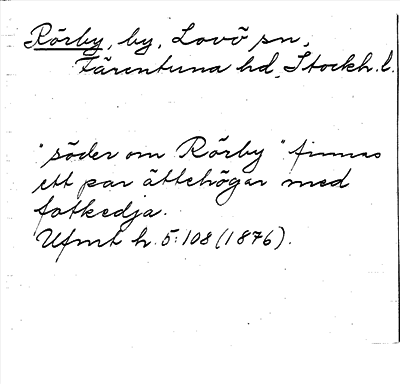 Rörby, by, Lovö sn,
Färentuna hd, Stockh. l.
"söder om Rörby" finnas
ett par ättehögar med
fotkedja.
Ufmt h. 5:108 (1876).